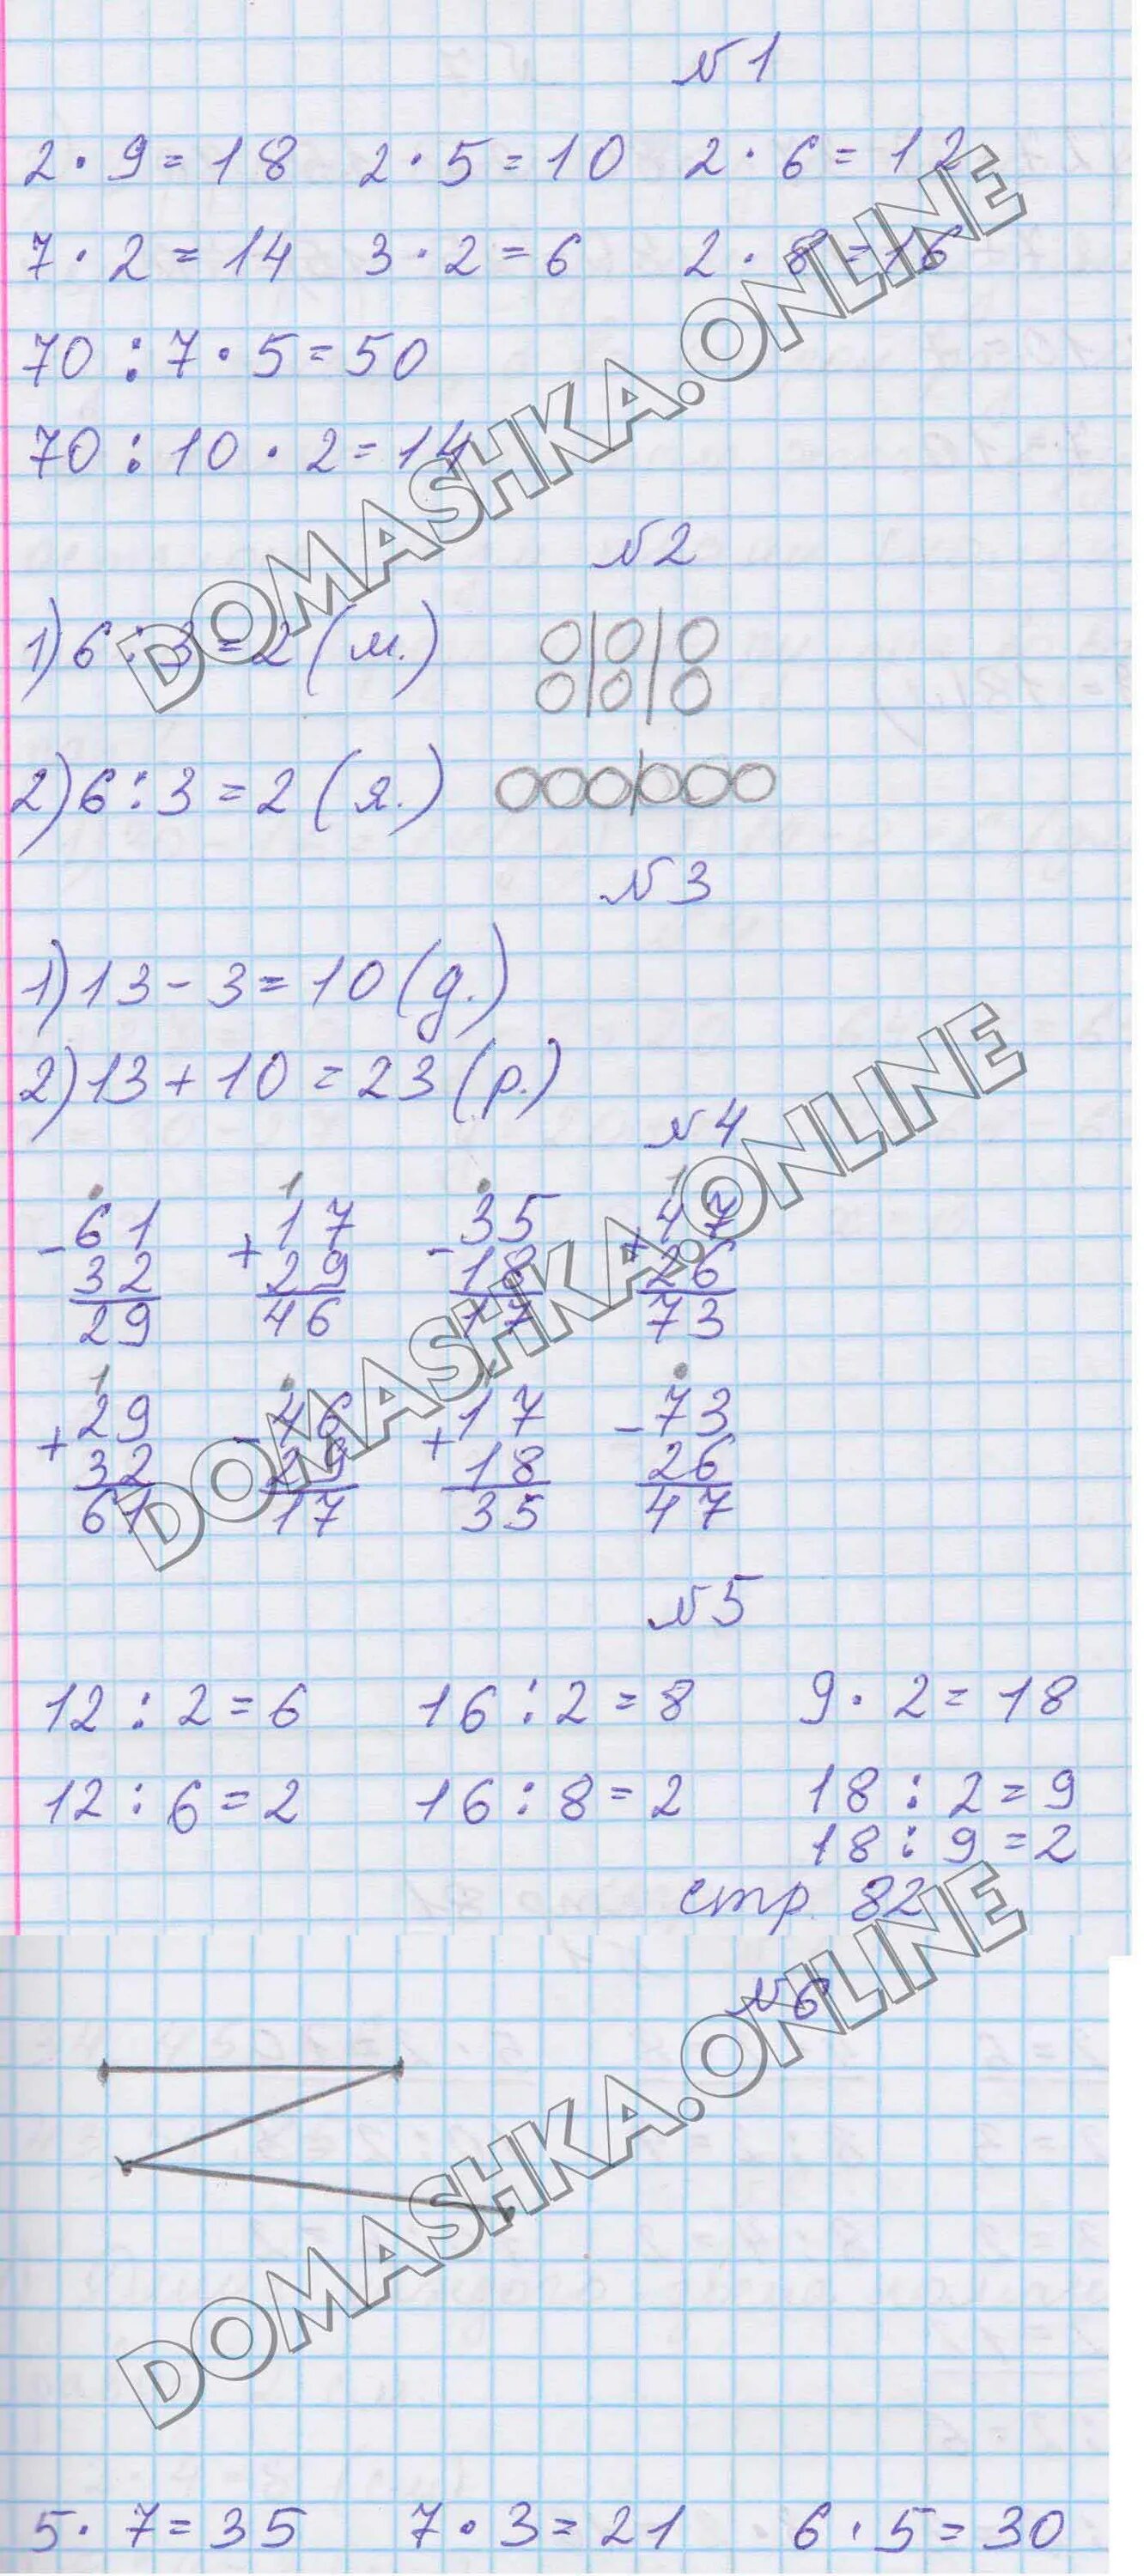 №1
2 · 9 = 18 2 · 5 = 10 2 · 6 = 12
7 · 2 = 14 3 · 2 = 6 2 · 8 = 16
70 : 7 · 5 = 50
70 : 10 · 2 = 14
№2
1) 6 : 3 = 2 (м.)
2) 6 : 3 = 2 (я.)
№3
1) 13 - 3 = 10 (д.)
2) 13 + 10 = 23 (р.)
№4
1 1
- 61 + 17 - 35 + 47
32 29 18 26
29 46 17 73
1 1
+ 29 - 46 + 17 - 73
32 29 18 26
61 17 35 47
№5
12 : 2 = 6 16 : 2 = 8 9 · 2 = 18
12 : 6 = 2 16 : 8 = 2 18 : 2 = 9
18 : 9 = 2
стр. 82
№6
5 · 7 = 35 7 · 3 = 21 6 · 5 = 30
DOMASHKA.ONLINE
DOMASHKA.ONLINE
DOMASHKA.ONLINE